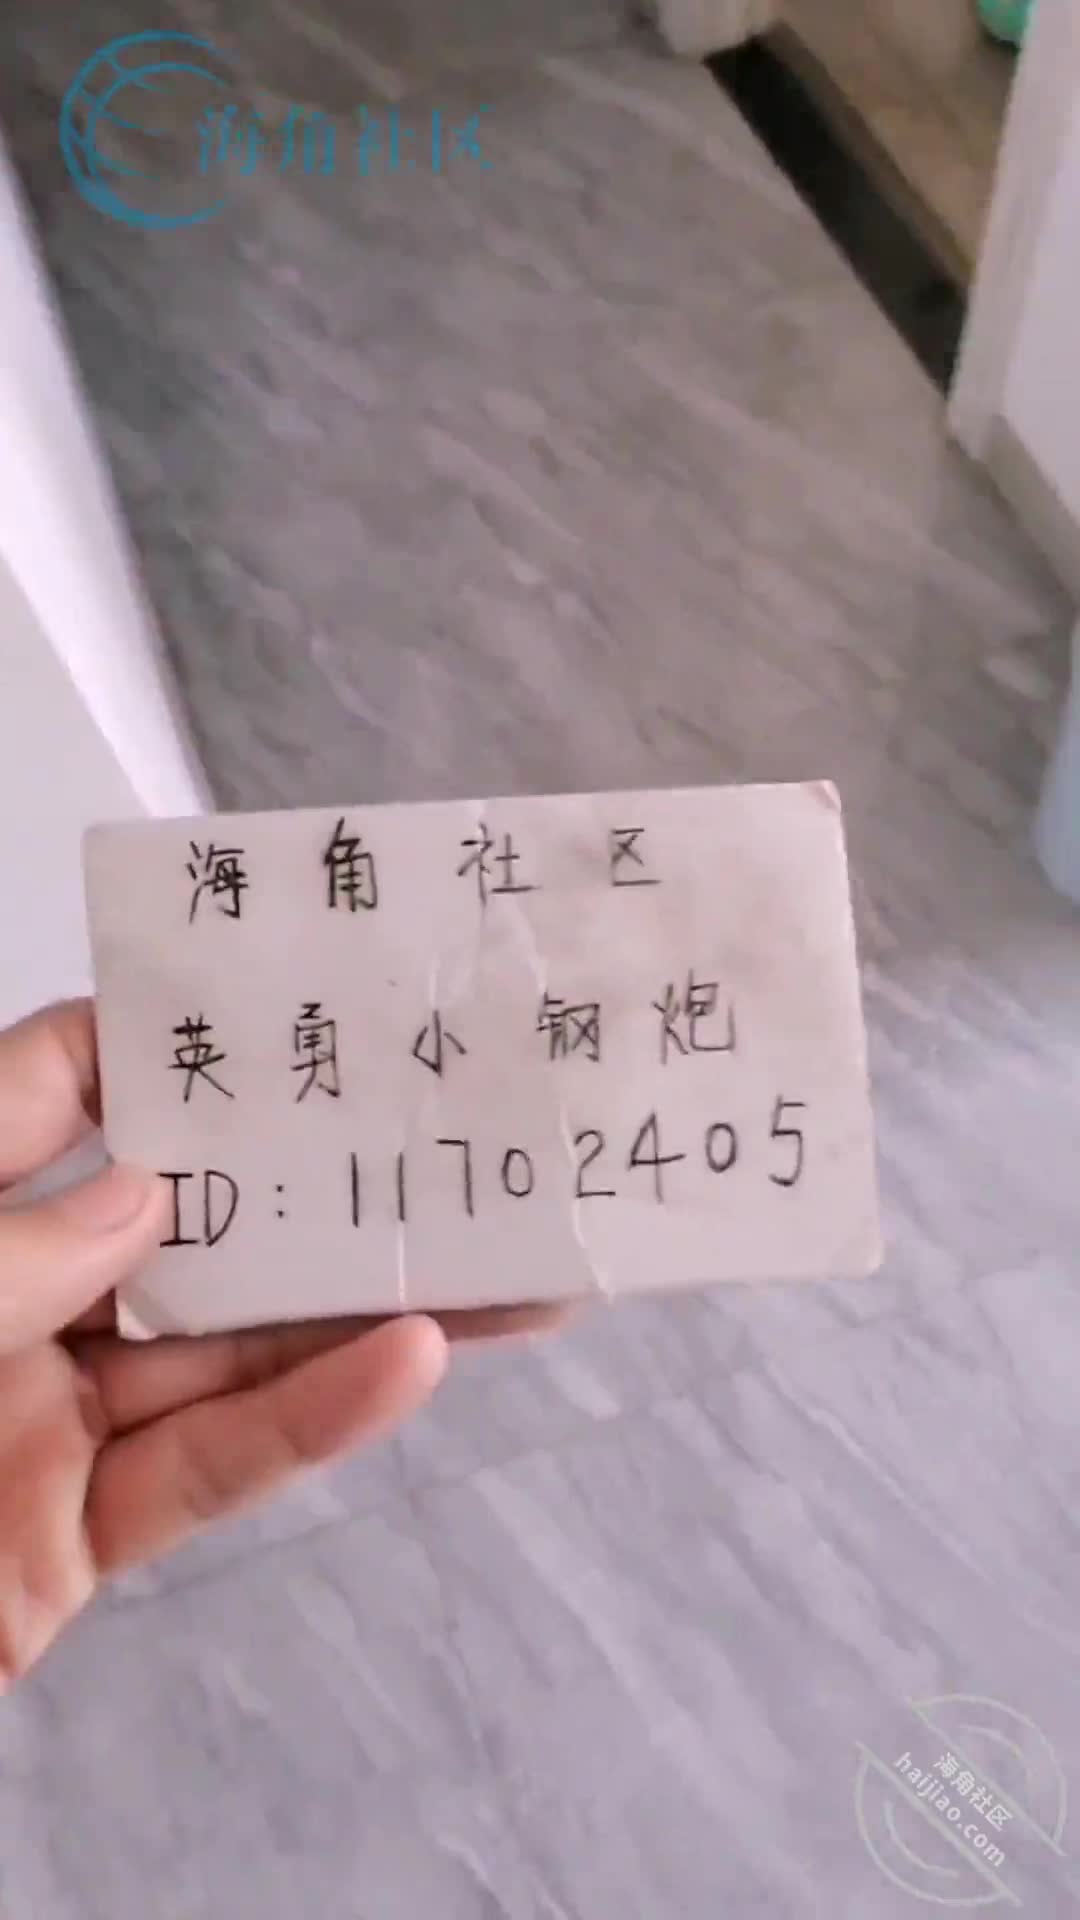 海角社区
海角社区
英勇小钢炮
ID: 11702405
海角社区
haijiao.com